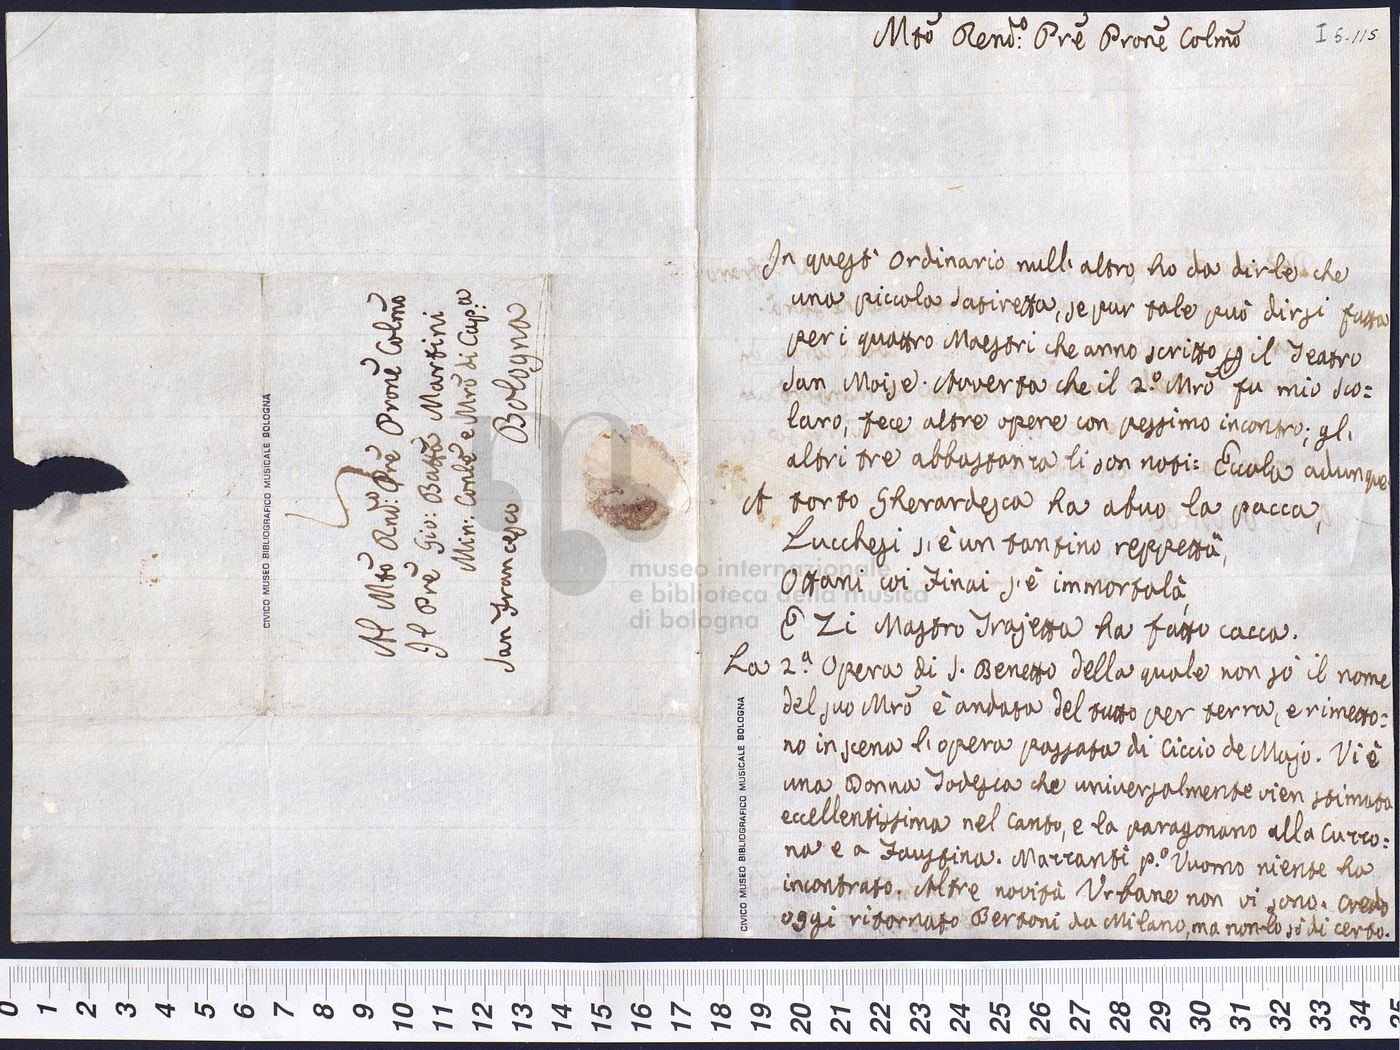 Al Mto Rndo: Pre Prone Colmo
Il Pre Gio: Batta Martini
Min: Conle e Mro di Cap:a
San Francesco Bologna
CIVICO MUSEO BIBLIOGRAFICO MUSICALE BOLOGNA
museo internazionale
e biblioteca della musica
di bologna
I 5-115
Mto Rend:o Pre Prone Colmo
In quest' Ordinario null' altro ho da dirle che
una piccola Satiretta, se pur tale può dirsi fatta
per i quattro Maestri che anno scritto p il Teatro
San Moise. Avverta che il 2.o Mro fu mio Sco=
laro, fece altre opere con pessimo incontro; gl'
altri tre abbastanza li son noti: Eccola adunque
A torto Gherardesca ha avuo la pacca,
Lucchesi s'è un tantino reppettà,
Ottani coi Finai s'è immortalà,
E Zi Mastro Trajetta ha fatto cacca.
La 2.a Opera di S. Benetto della quale non sò il nome
del suo Mro è andata del tutto per terra, e rimetto=
no in scena l'opera passata di Ciccio de Majo. Vi è
una Donna Todesca che universalmente vien stimata
eccellentissima nel Canto, e la paragonano alla Cuzzo=
na e a Faustina. Mazzanti p.o Vuomo niente ha
incontrato. Altre novità Urbane non vi sono. Credo
oggi ritornato Bertoni da Milano, ma non lo sò di certo.
CIVICO MUSEO BIBLIOGRAFICO MUSICALE BOLOGNA
0 1 2 3 4 5 6 7 8 9 10 11 12 13 14 15 16 17 18 19 20 21 22 23 24 25 26 27 28 29 30 31 32 33 34 35